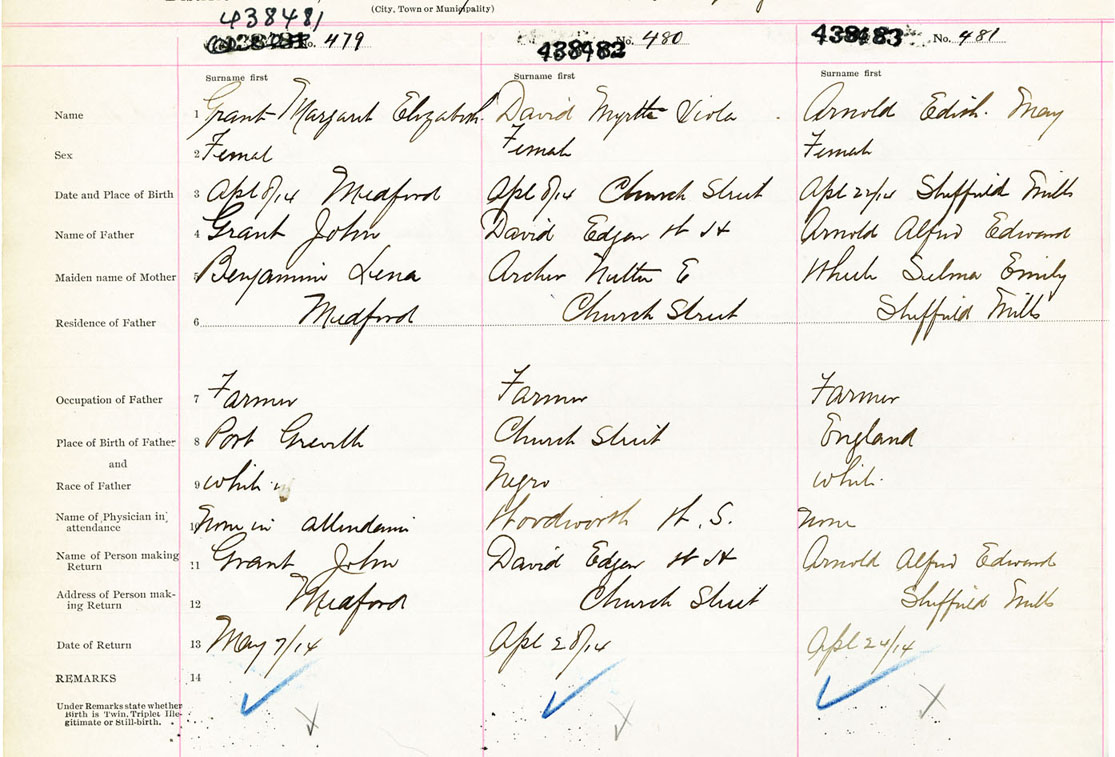 (City, Town or Municipality)
438481
No. 479
438482 No. 480
438483 No. 481
Surname first Surname first Surname first
Name 1 Grant Margaret Elizabeth David Myrtle Viola Arnold Edith. May
Sex 2 Femal Female Female
Date and Place of Birth 3 Apl 8/14 Medford Apl 8/14 Church Street Apl 22/14 Sheffield Mills
Name of Father 4 Grant John David Edgar W H Arnold Alfred Edward
Maiden name of Mother 5 Benjamin Lena Archer E Selma Emily
Residence of Father 6 Medford Church Street Sheffield Mills
Occupation of Father 7 Farmer Farmer Farmer
Place of Birth of Father 8 Port Greville Church Street England
and
Race of Father 9 White Negro White.
Name of Physician in attendance 10 None in attendance H. S. None
Name of Person making Return 11 Grant John David Edgar W H Arnold Alfred Edward
Address of Person making Return 12 Medford Church Street Sheffield Mills
Date of Return 13 May 7/14 Apl 28/14 Apl 24/14
REMARKS 14
Under Remarks state whether
Birth is Twin, Triplet Ille-
gitimate or Still-birth.